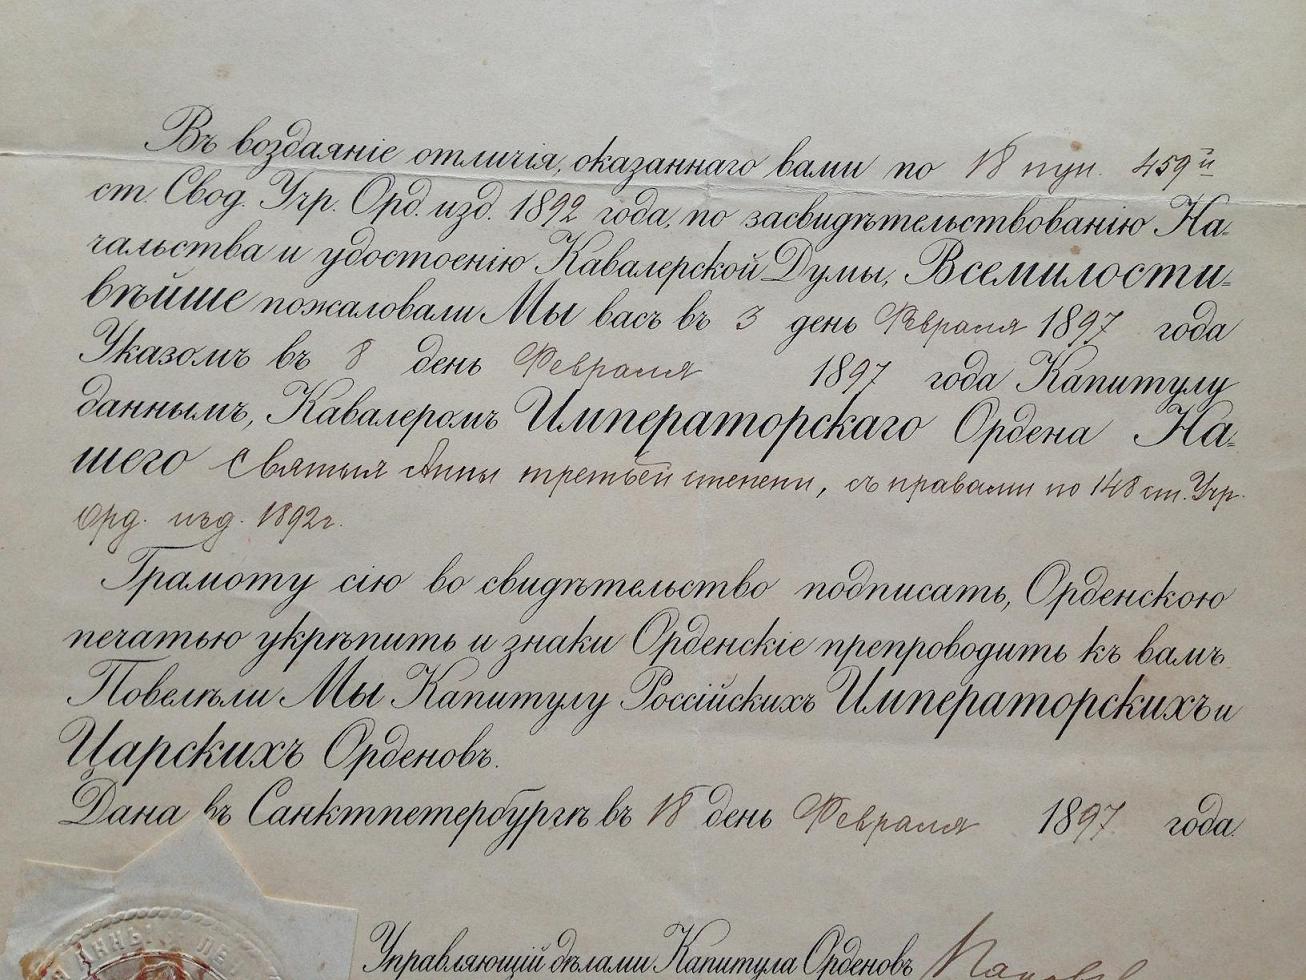 Въ воздаяніе отличія, оказаннаго вами по 18 пун. 459й
ст. Свод. Учр. Орд. изд. 1892 года, по засвидѣтельствованію На-
чальства и удостоенію Кавалерской Думы, Всемилости-
вѣйше пожаловали Мы васъ въ 3 день Февраля 1897 года
Указомъ въ 8 день Февраля 1897 года Капитулу
даннымъ, Кавалеромъ Императорскаго Ордена На-
шего Святыя Анны третьей степени, съ правами по 148 ст. Учр.
Орд. изд. 1892 г.
Грамоту сію во свидѣтельство подписать, Орденскою
печатью укрѣпить и знаки Орденскіе препроводить къ вамъ
Повелѣли Мы Капитулу Россійскихъ Императорскихъ и
Царскихъ Орденовъ.
Дана въ Санктпетербургѣ въ 18 день Февраля 1897 года.
Управляющій дѣлами Капитула Орденовъ